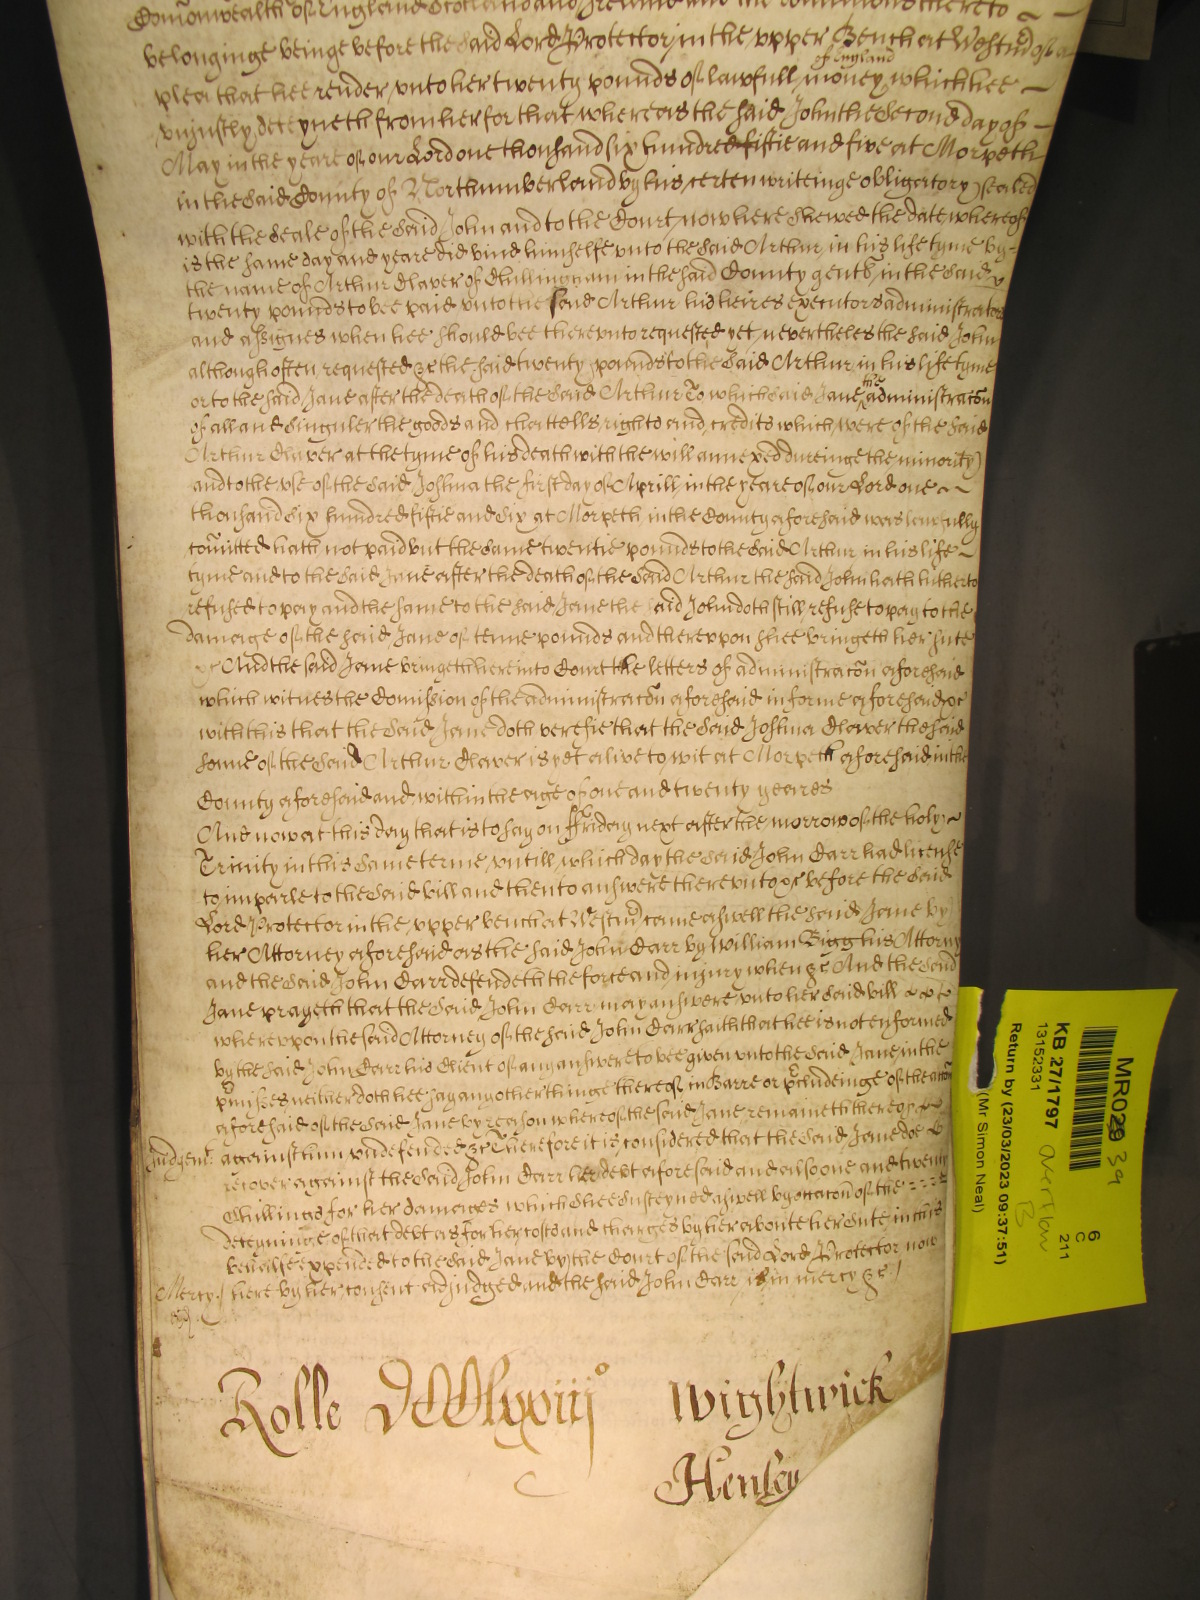 Comonwealth of England Scotland and Ireland and the dominions thereto
belonginge beinge before the said Lord Protector in the upper Bench at Westm̃ of a
of England
plea that hee render unto her twenty pounds of lawfull money which hee
uniustly deteyneth from her for that whereas the said John the second day of
May in the yeare of our Lord one thousand six hundred fiftie and five at Morpeth
in the said County of Northumberland by his certen writeinge obligatory sealed
with the seale of the said John and to the Court now here shewed the date whereof
is the same day and yeare did bind himselfe unto the said Arthur in his life tyme by
the name of Arthur Claver of Chillingham in the said County gent in the said
twenty pounds to bee paid unto the said Arthur his heires executors administrators
and assignes when hee should bee thereunto requested yet nevertheles the said John
although often requested &c the said twenty pounds to the said Arthur in his life tyme
or to the said Jane after the death of the said Arthur To which said Jane the administracõn
of all and singuler the goods and chattells rights and credits which were of the said
Arthur Claver at the tyme of his death with the will annexed dureinge the minority
and to the use of the said Joshua the first day of Aprill in the yeare of our Lord one
thousand six hundred fiftie and six at Morpeth in the County aforesaid was lawfully
cõmitted hath not paid but the same twentie pounds to the said Arthur in his life
tyme and to the said Jane after the death of the said Arthur the said John hath hitherto
refused to pay and the same to the said Jane the said John doth still refuse to pay to the
damage of the said Jane of tenne pounds and thereupon shee bringeth her sute
And the said Jane bringeth here into Court the letters of administracõn aforesaid
which witnes the Comission of the administracõn aforesaid in forme aforesaid &c
with this that the said Jane doth verefie that the said Joshua Claver the said
sonne of the said Arthur Claver is yet alive to wit at Morpeth aforesaid in the
County aforesaid and within the age of one and twenty yeares
And now at this day that is to say on ffriday next after the morrow of the holy
Trinity in this same terme untill which day the said John Carr had license
to imparle to the said bill and then to answere thereunto &c before the said
Lord Protector in the upper bench at Westm̃ came aswell the said Jane by
her Attorney aforesaid as the said John Carr by William Bigg his Attorny
and the said John Carr defendeth the force and injury when &c And the said
Jane prayeth that the said John Carr may answere unto her said bill &c
whereupon the said Attorney of the said John Carr saith that hee is not enformed
by the said John Carr his Client of any answere to bee given unto the said Jane in the
p̃misses neither doth hee say any other thinge thereof in Barre or p̃cludeinge of the accõn
aforesaid of the said Jane by reason whereof the said Jane remaineth thereof
Judgem̃t against him undefended &c Therefore it is considered that the said Jane doe
recover against the said John Carr her debt aforesaid and alsoe one and twenty
shillings for her damages which shee susteyned aswell by occacõn of the
deteyninge of that debt as for her costs and charges by her aboute her sute in this
behalfe expended to the said Jane by the Court of the said Lord Protector now
Mercy here by her consent adjudged and the said John Carr is in mercy &c
Rolle Wightwick
Henley
MR029 39
KB 27/1797 overflow B
13152331
6
C
211
Return by (23/03/2023 09:37:51)
(Mr Simon Neal)